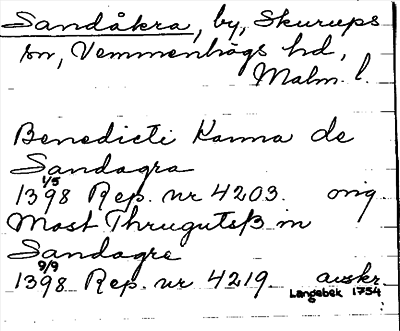 Sandåkra, by, Skurups
sn, Vemmenhögs hd,
Malm. l.
Benedicti Kanna de
Sandagra
1/5
1398 Rep. nr 4203. orig
Most Thrugutsß m
Sandagre
9/9
1398 Rep. nr 4219 avskr
Langebek 1754